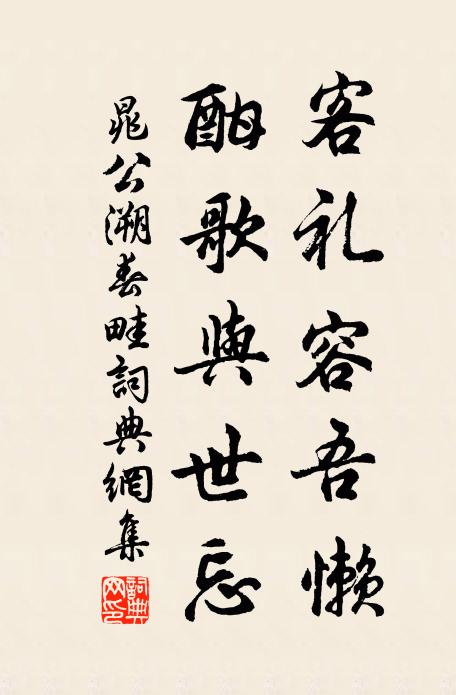 客礼容吾懒
酣歌與世忘
晁公溯春畦詞典網集
詞典
网印